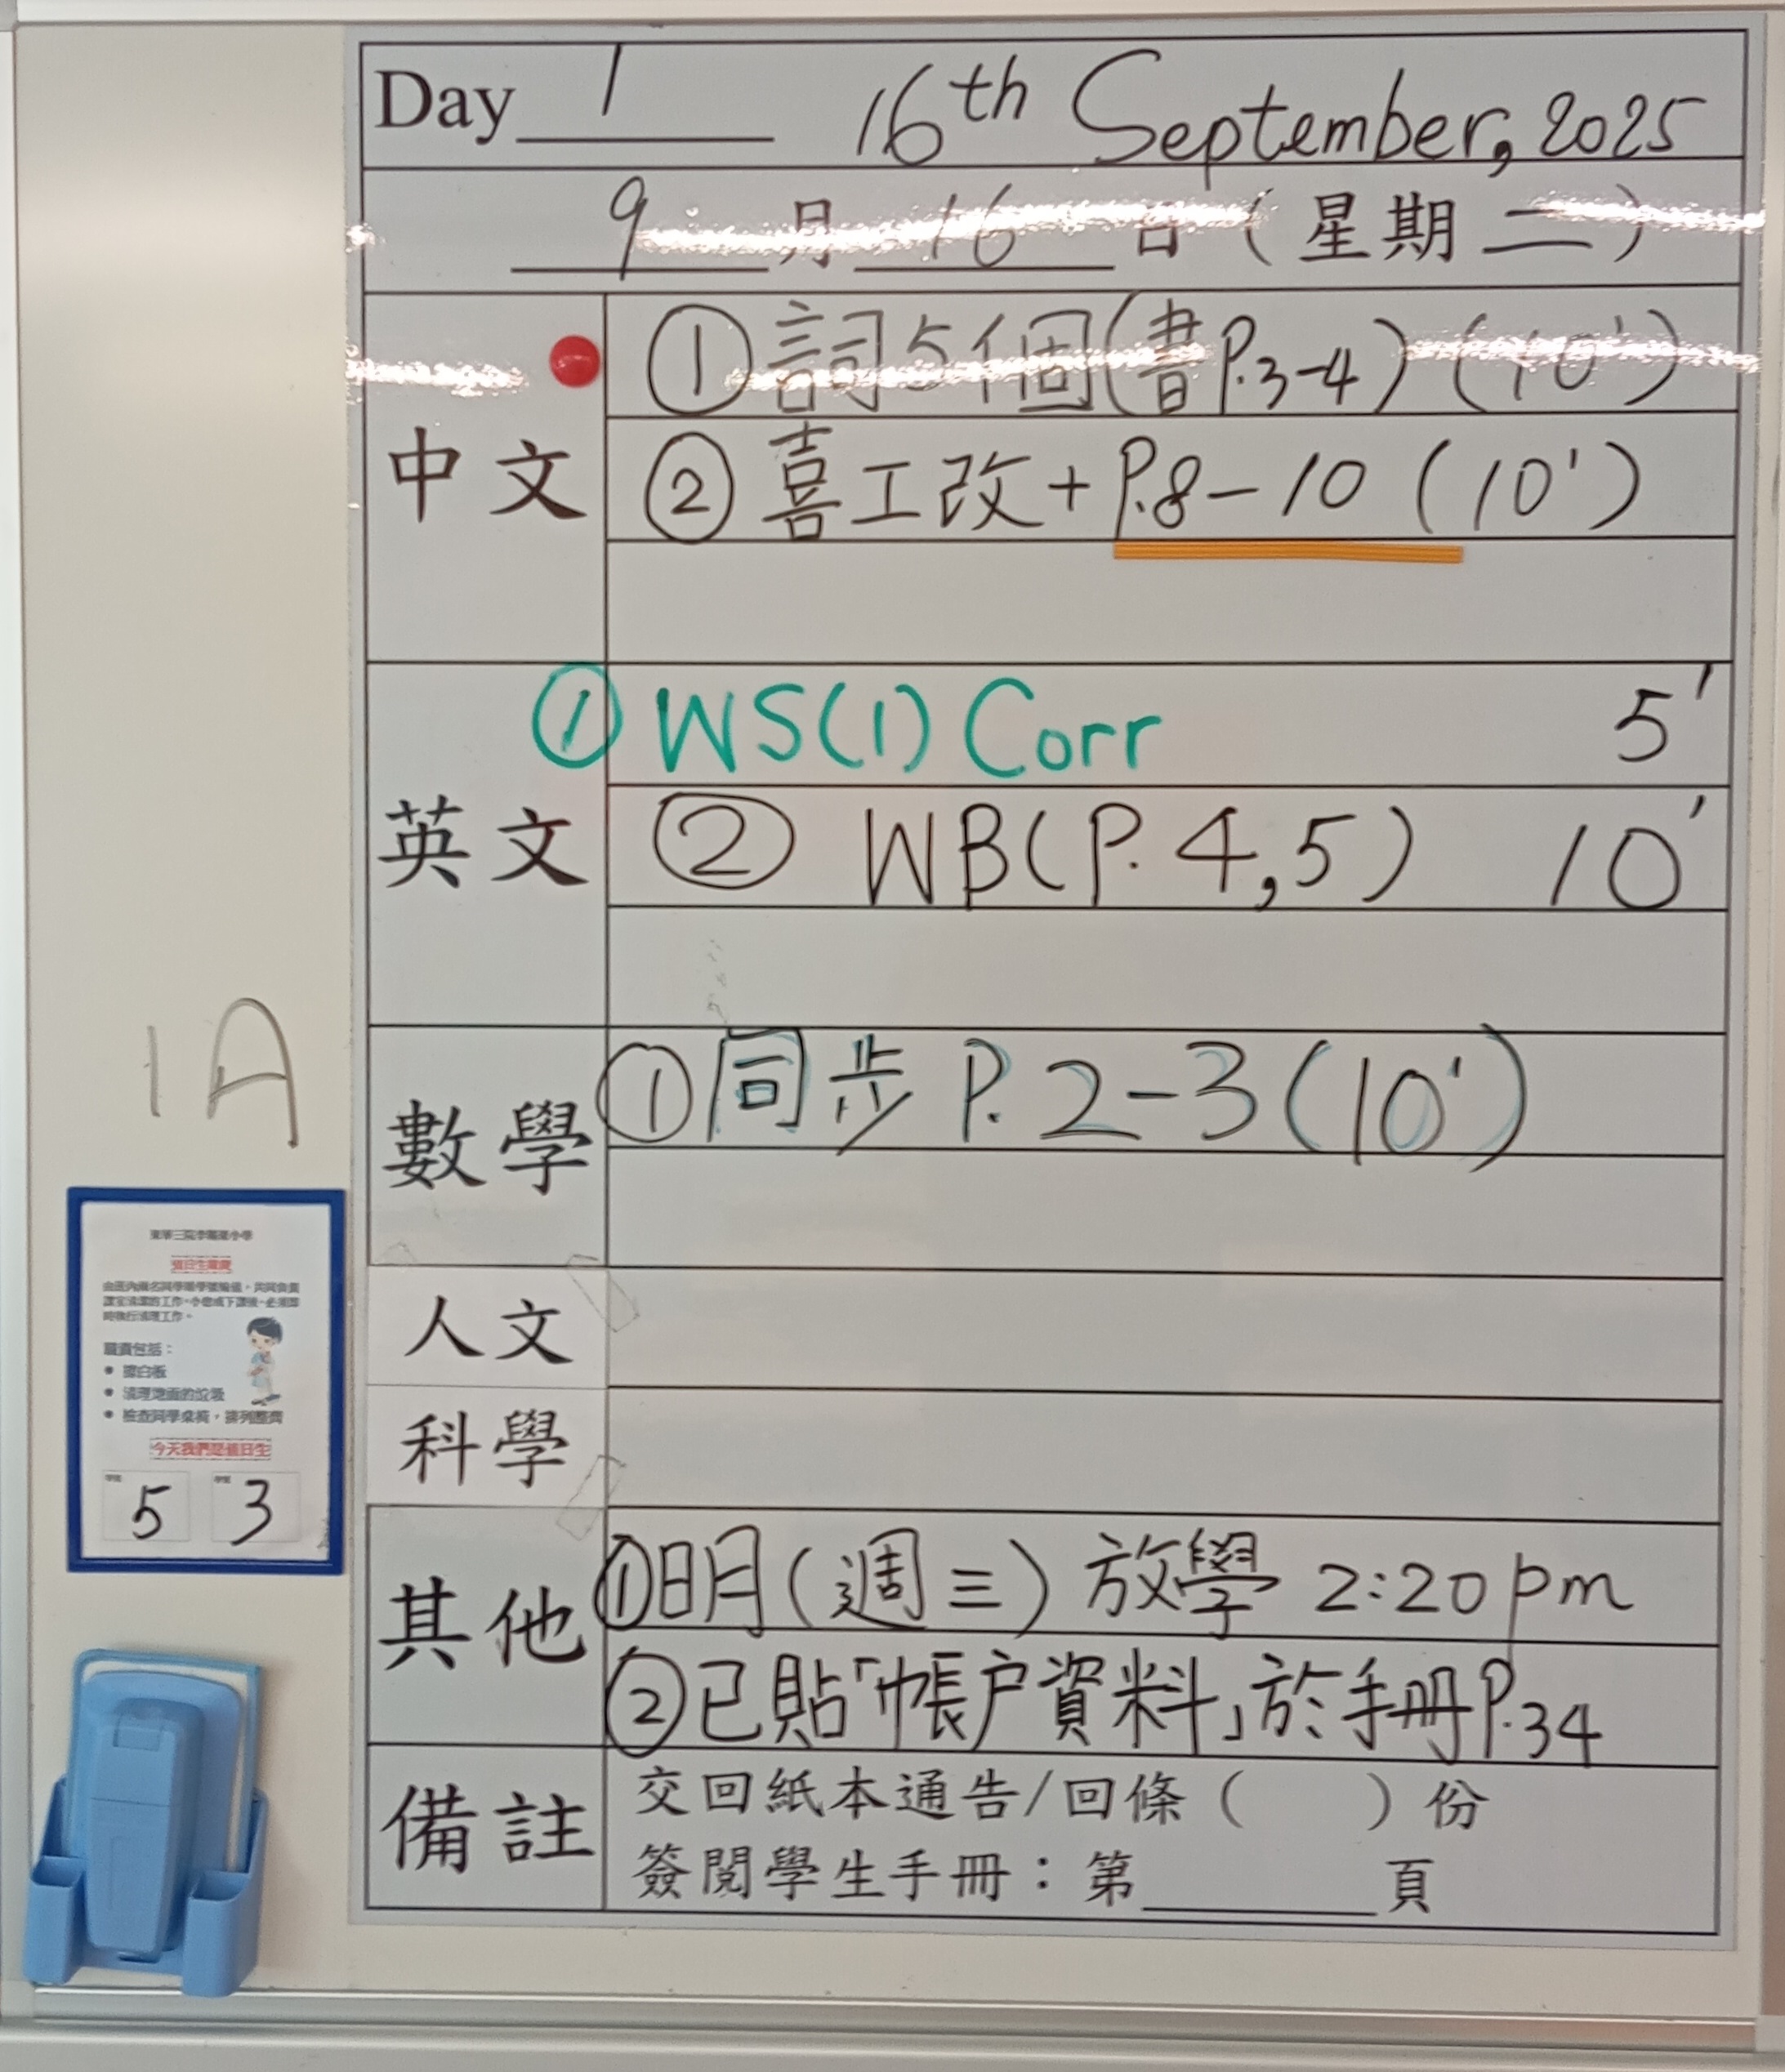 Day 1 16th September, 2025
9 月 16 日 ( 星期 二 )
中文
① 詞5個(書P.3-4) (10')
② 喜工改+P.8-10 (10')
英文
① WS(1) Corr 5'
② WB(P. 4,5) 10'
數學
① 同步 P. 2-3 (10')
人文
科學
其他
① 明(週三) 放學 2:20pm
② 已貼「帳戶資料」於手冊P.34
備註
交回紙本通告/回條 ( ) 份
簽閱學生手冊：第 頁
1A
值日生職責
職責包括：
• 擦白板
• 清理地面的垃圾
• 檢查同學桌椅，排列整齊
今天我們是值日生
5 3